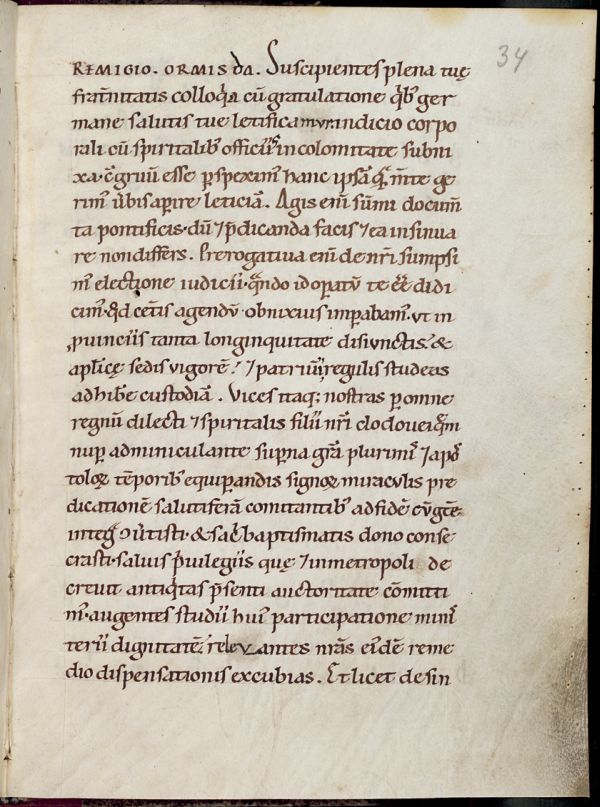 34
REMIGIO. ORMISDA. Suscipientes plena tuę
frat̄nitatis colloq̇a cū gratulatione qb᷒ ger
mane salutis tue letificamur indicio corpo
rali cū spiritalib᷒ officiis incolomitate subni
xa. c̄gruū esse ꝑspexim᷒ hanc ipsā q̄ m̄te ge
rim᷒ ūbis aꝑire leticiā. Agis eni᷒ sūmi docum̄
ta pontificis. dū ⁊ p̄dicanda facis ⁊ ea insinua
re non differs. Prerogatiua eni᷒ de nr̄i sumpsi
m᷒ electione iudicii. qn̄do id oꝑatū te ēē didi
cim᷒. qd cet̄is agendū obnixius imꝑabam᷒. ut in
ꝓuinciis tanta longinquitate disiunctis. &
ap̄licę sedis uigorē. ⁊ patrū regulis studeas
adhibe custodiā. Vices itaq; nostras ꝑ omne
regnū dilecti ⁊ spiritalis filii nr̄i clodouei. qm̄
nuꝑ adminiculante suꝑna gr̄a plurimis ⁊ apo
toloꝝ tēporib᷒ equiꝑandis signoꝝ miraculis pre
dicationē salutiferā comitantib᷒ ad fidē cū gēte
integ̊ ꝯūtisti. & sac̊ baptismatis dono conse
crasti. saluis p̄uilegiis quę ⁊ in metropoli de
creuit antiq̇tas p̄senti auctoritate cōmitti
m᷒. augentes studii hui᷒ participatione minis
terii dignitatē. releuantes nr̄as eidē reme
dio dispensationis excubias. Et licet de sin